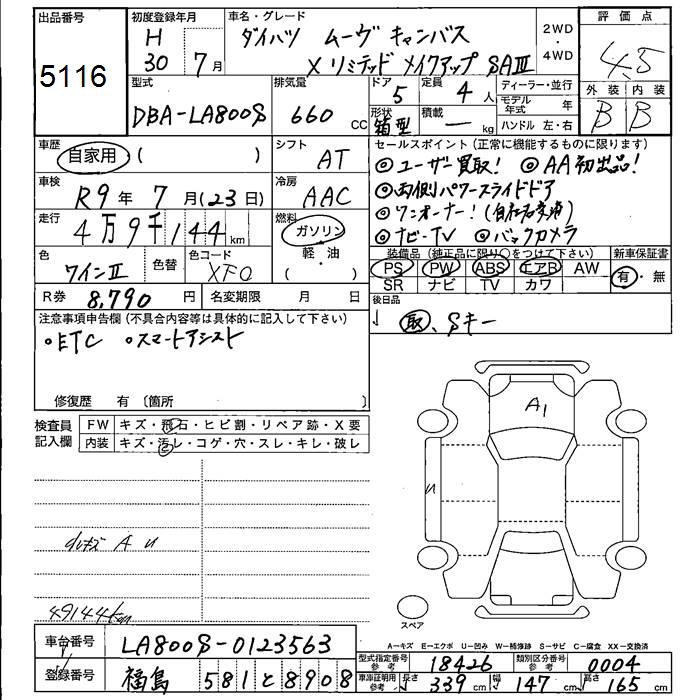 出品番号
5116
初度登録年月
H
30 7月
車名・グレード
ダイハツ ムーヴ キャンバス
X リミテッド メイクアップ SAⅢ
2WD
・
4WD
評価点
4.5
外装 内装
B B
型式
DBA-LA800S
排気量
660 CC
ドア
5
定員
4人
形状
箱型
積載
ー kg
ディーラー・並行
モデル年式 年
ハンドル 左・右
車歴
自家用 ( )
シフト
AT
車検
R9年 7月(23日)
冷房
AAC
走行
4万9千144km
燃料
ガソリン
軽・油
( )
色
ワインⅡ
色替
色コード
XF0
R券 8,790円
名変期限 月 日
セールスポイント(正常に機能するものに限ります)
◎ユーザー買取! ◎AA初出品!
◎両側パワースライドドア
◎ワンオーナー!(自社名変済)
◎ナビ・TV ◎バックカメラ
装備品(純正品に限り○をつけて下さい)
PS PW ABS エアB AW
SR ナビ TV カワ
新車保証書
有・無
後日品
取、Sキー
注意事項申告欄(不具合内容等は具体的に記入して下さい)
◦ETC ◦スマートアシスト
修復歴 有〔箇所
検査員
記入欄
FW キズ・飛石・ヒビ割・リペア跡・X要
内装 キズ・汚レ・コゲ・穴・スレ・キレ・破レ
A U
49144km
A1
U
スペア
A─キズ E─エクボ U─凹み W─補修跡 S─サビ C─腐食 XX─交換済
車台番号 LA800S-0123563
登録番号 福島 581 と 8908
型式指定番号
参考
18426
類別区分番号
参考
0004
車庫証明用
参考
長さ 339cm 幅 147cm 高さ 165cm